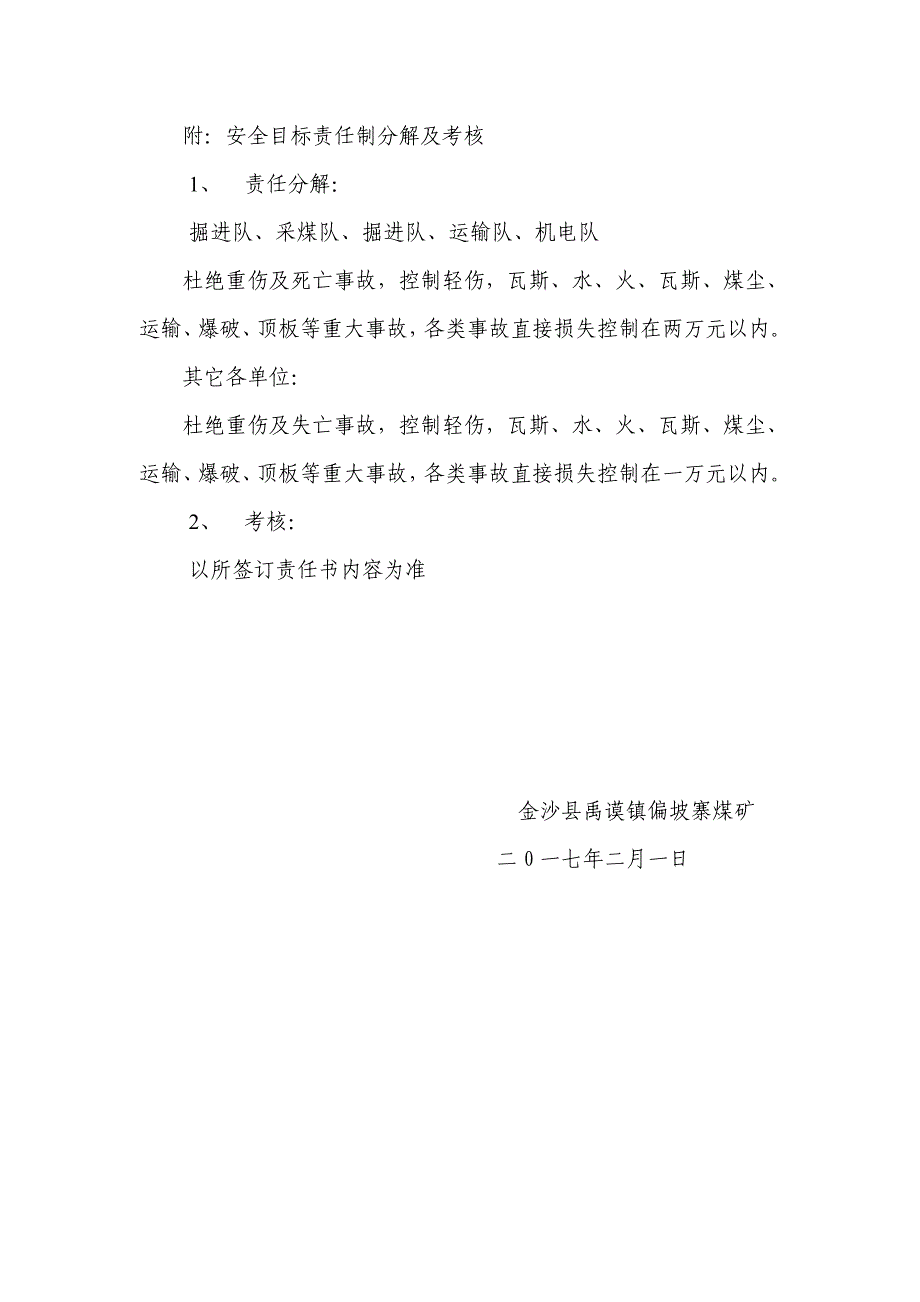 附：安全目标责任制分解及考核
1、 责任分解：
掘进队、采煤队、掘进队、运输队、机电队
杜绝重伤及死亡事故，控制轻伤，瓦斯、水、火、瓦斯、煤尘、
运输、爆破、顶板等重大事故，各类事故直接损失控制在两万元以内。
其它各单位：
杜绝重伤及失亡事故，控制轻伤，瓦斯、水、火、瓦斯、煤尘、
运输、爆破、顶板等重大事故，各类事故直接损失控制在一万元以内。
2、 考核：
以所签订责任书内容为准
金沙县禹谟镇偏坡寨煤矿
二0一七年二月一日